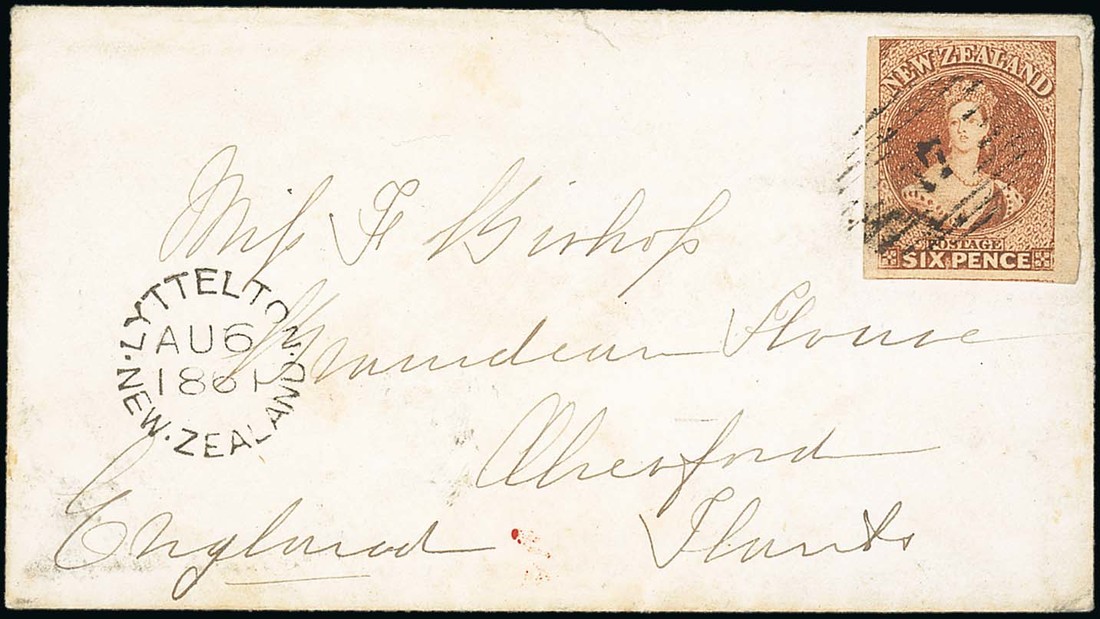 NEW ZEALAND
POSTAGE
SIX PENCE
LYTTELTON
AU 6
1861
NEW·ZEALAND
Miss F Bishop
House
Alresford
Hants
England